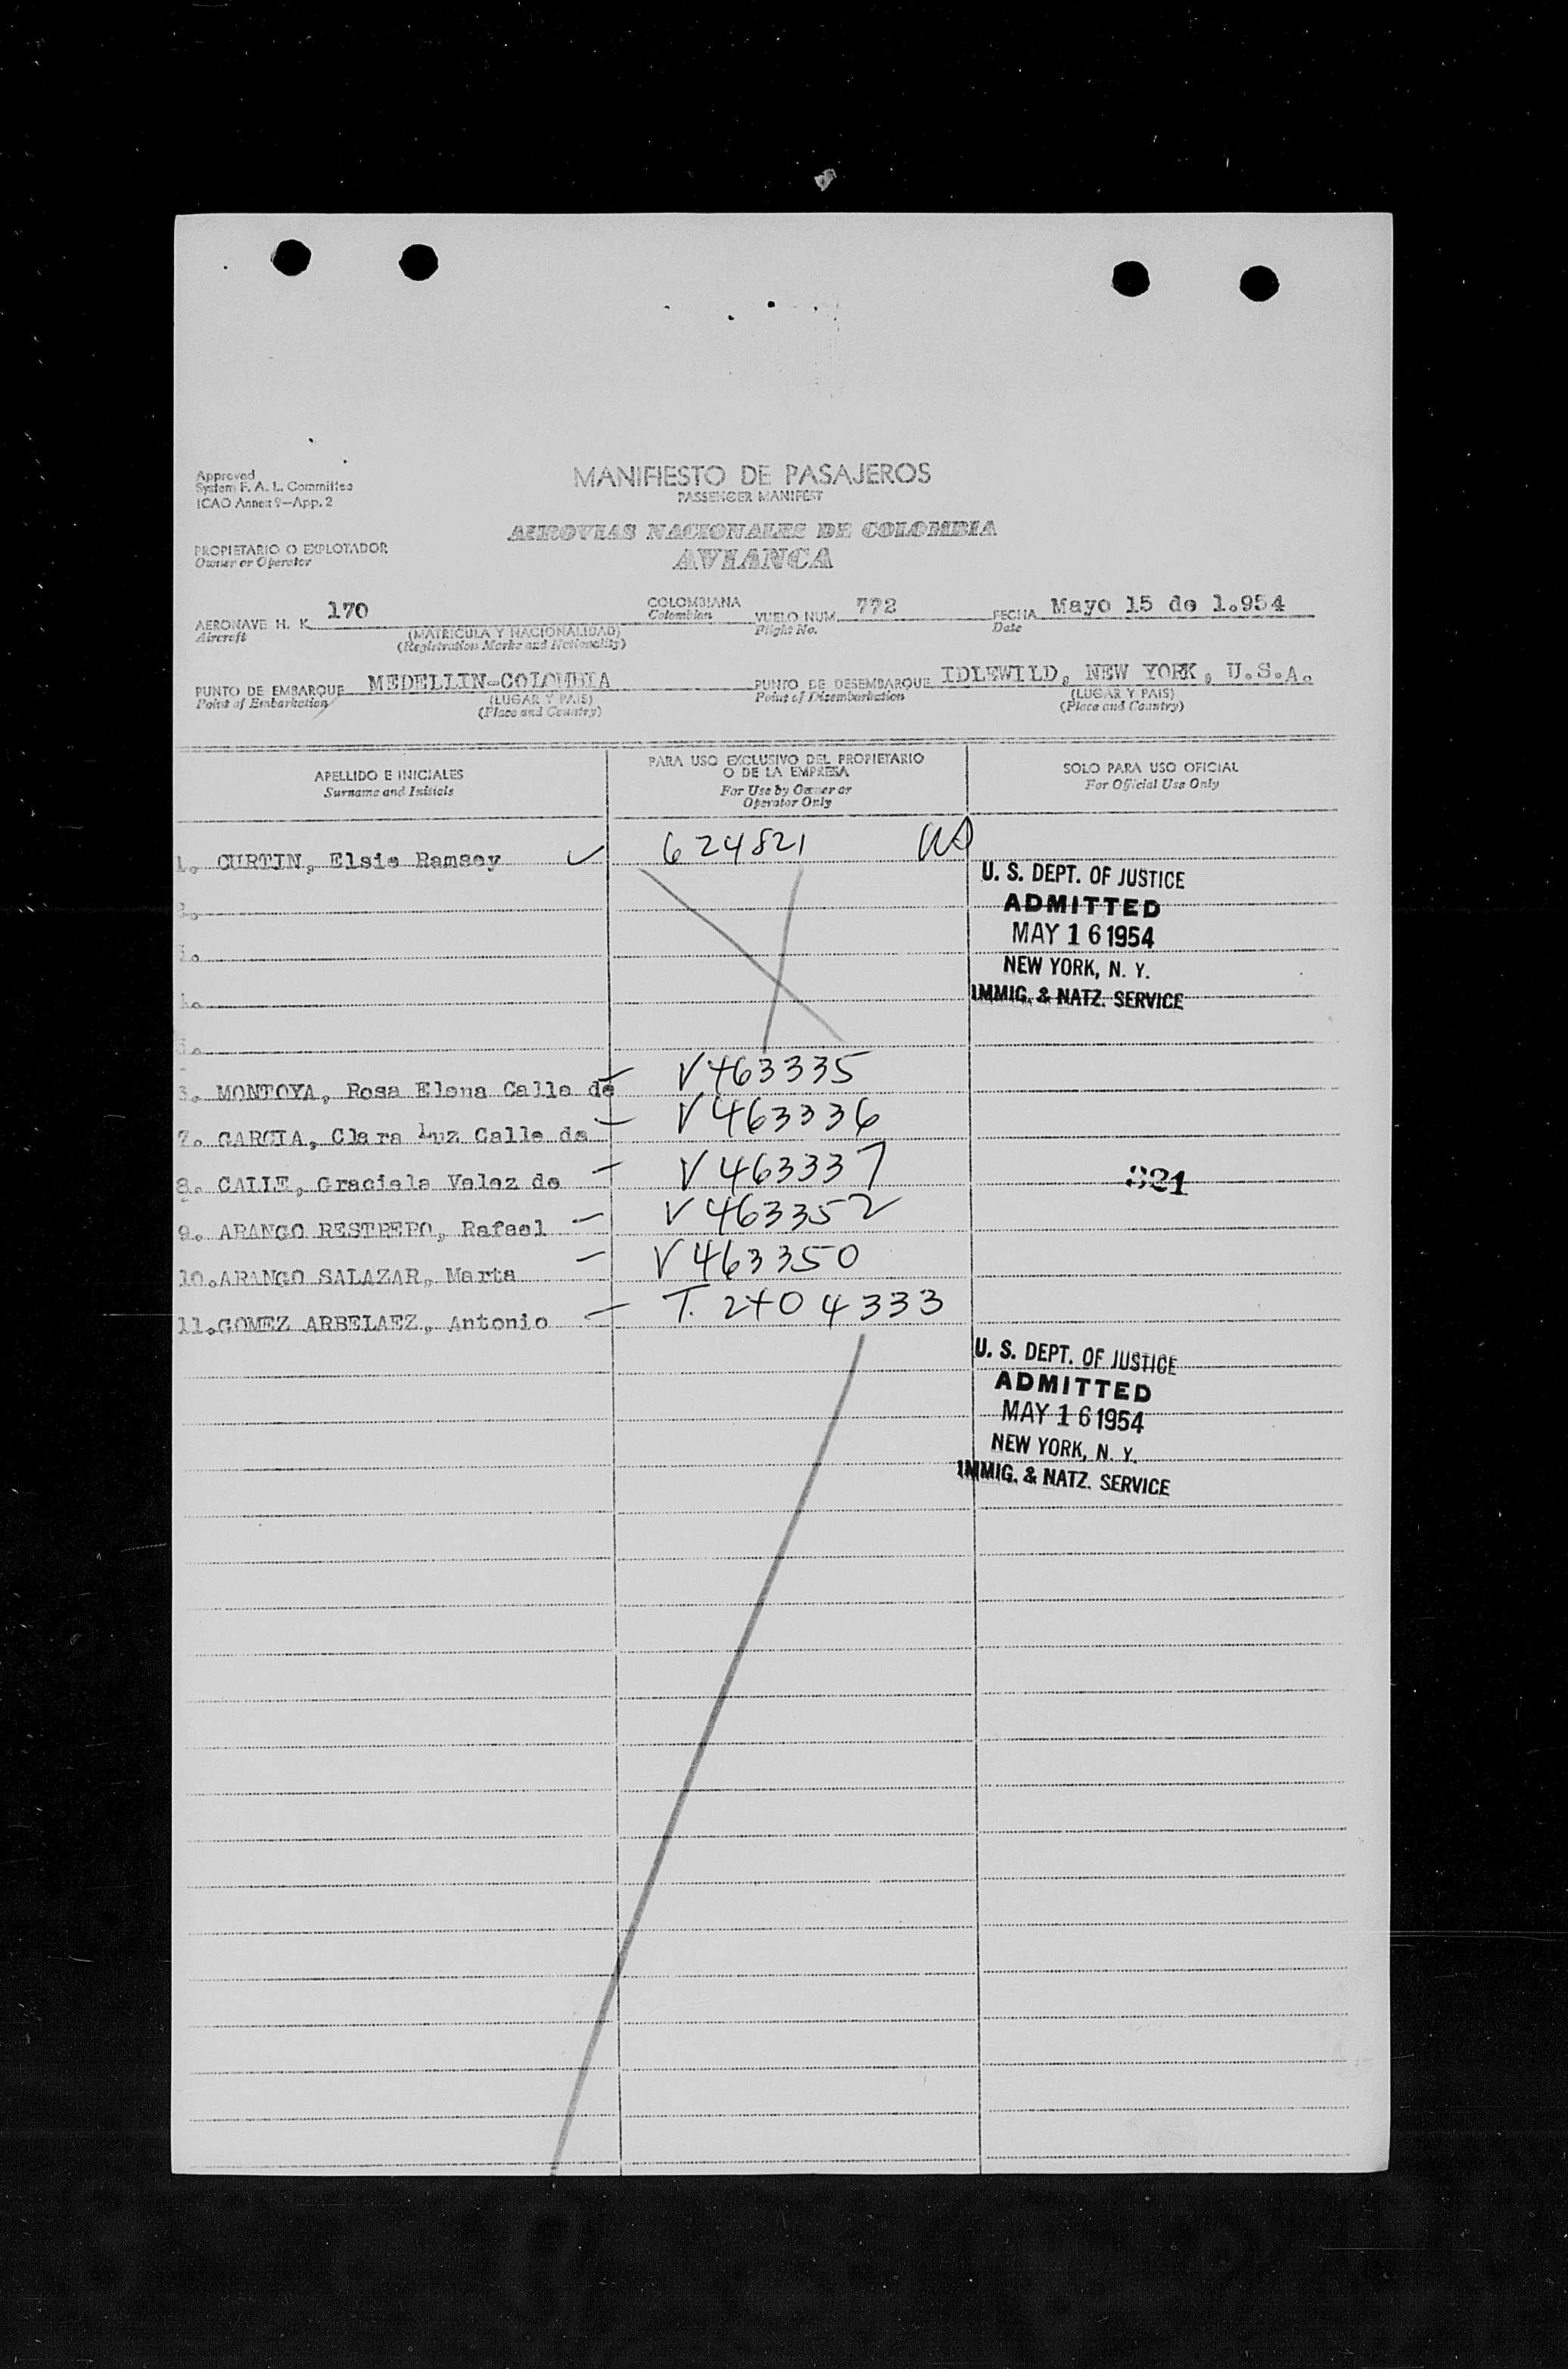 Approved
System F. A. L. Committee
ICAO Annex 9-App. 2
MANIFIESTO DE PASAJEROS
PASSENGER MANIFEST
AEROVIAS NACIONALES DE COLOMBIA
AVIANCA
PROPIETARIO O EXPLOTADOR
Owner or Operator
AERONAVE H. K. 170 COLOMBIANA VUELO NUM. 772 FECHA Mayo 15 de 1.954
Aircraft (MATRICULA Y NACIONALIDAD) Colombian Flight No. Date
(Registration Marks and Nationality)
PUNTO DE EMBARQUE MEDELLIN-COLOMBIA PUNTO DE DESEMBARQUE IDLEWILD, NEW YORK, U.S.A.
Point of Embarkation (LUGAR Y PAIS) Point of Disembarkation (LUGAR Y PAIS)
(Place and Country) (Place and Country)
APELLIDO E INICIALES
Surname and Initials
PARA USO EXCLUSIVO DEL PROPIETARIO
O DE LA EMPRESA
For Use by Owner or
Operator Only
SOLO PARA USO OFICIAL
For Official Use Only
1. CURTIN, Elsie Ramsey 624821
U. S. DEPT. OF JUSTICE
ADMITTED
MAY 16 1954
NEW YORK, N. Y.
IMMIG. & NATZ. SERVICE
2.
3.
4.
5.
6. MONTOYA, Rosa Elena Calle de V463335
7. GARCIA, Clara Luz Calle de V463336
8. CALLE, Graciela Velez de V463337
321
9. ARANGO RESTREPO, Rafael V463352
10. ARANGO SALAZAR, Marta V463350
11. GOMEZ ARBELAEZ, Antonio T. 2404333
U. S. DEPT. OF JUSTICE
ADMITTED
MAY 16 1954
NEW YORK, N. Y.
IMMIG. & NATZ. SERVICE